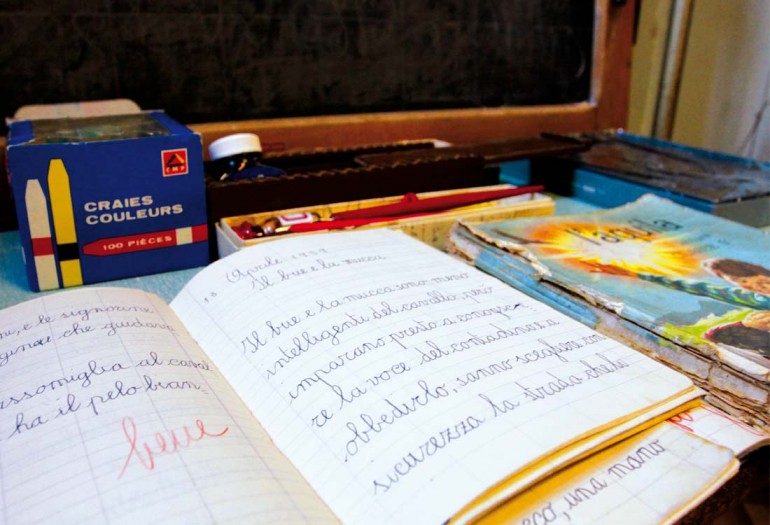 CMP
CRAIES
COULEURS
100 PIÈCES
l'aquila
ni, e le signorine
che guidava
assomiglia al caval
ha il pelo bian-
bene
Aprile
Il bue e la mucca
Il bue e la mucca sono meno
intelligenti del cavallo, però
imparano presto a conosce-
re la voce del contadino e
obbedirlo, sanno scegliere con
sicurezza la strada
una mano